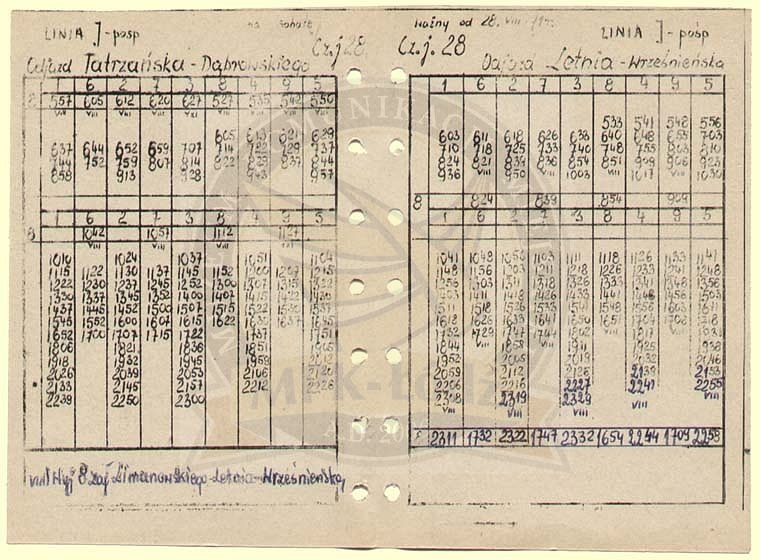 LINIA J-posp na sobotę
Odjazd Tatrzańska - Dąbrowskiego Cz.j 28.
1 6 2 7 3 8 4 9 5
8 557 605 612 620 627 527 535 542 550
605 613 621 629
637 644 652 659 707 714 722 729 737
744 752 759 807 814 822 829 837 844
858 913 928 943 957
1 6 2 7 3 8 4 9 5
8 1042 1057 1112 1127
VIII VIII VIII VIII
1010 1024 1037 1051 1104
1115 1122 1130 1137 1145 1152 1200 1207 1215
1222 1230 1237 1245 1252 1300 1307 1315 1322
1330 1337 1345 1352 1400 1407 1415 1422 1430
1437 1445 1452 1500 1507 1515 1522 1530 1537
1545 1552 1600 1607 1615 1622 1630 1637 1645
1652 1700 1707 1715 1722 1737 1751
1806 1821 1836 1851 1905
1918 1932 1945 1959 2012
2026 2039 2053 2106 2120
2133 2145 2157 2212 2226
2239 2250 2300
VIII Wyj 8 zaj. Limanowskiego-Letnia-Wrześnieńską
Ważny od 28. VIII
LINIA J - pośp
Cz.j. 28 Odjazd Letnia - Wrześnieńska
1 6 2 7 3 8 4 9 5
533 541 548 556
603 611 618 626 633 640 648 655 703
710 718 725 733 740 748 755 803 810
824 821 839 836 854 851 909 906 923
936 VIII 950 VIII 1003 VIII 1017 VIII 1030
8 824 839 854 909
1 6 2 7 3 8 4 9 5
1041 1048 1056 1103 1111 1118 1126 1133 1141
1148 1156 1203 1211 1218 1226 1233 1241 1248
1256 1303 1311 1318 1326 1333 1341 1348 1356
1403 1411 1418 1426 1433 1441 1448 1456 1503
1511 1518 1526 1533 1541 1548 1556 1603 1611
1618 1626 1633 1641 1704 1708 1718
1729 1744
1844 1858 1911 1925 1938
1952 2005 2019 2032 2046
2059 2112 2126 2139 2153
2206 2216 2227 2241 2255
2308 2319 2329 VIII VIII
VIII VIII VIII
2311 1732 2322 1747 2332 1654 2244 1709 2258
MPK-Łódź